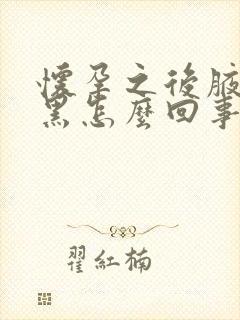 懷孕之後腋
黑怎麼回事
翟紅楠